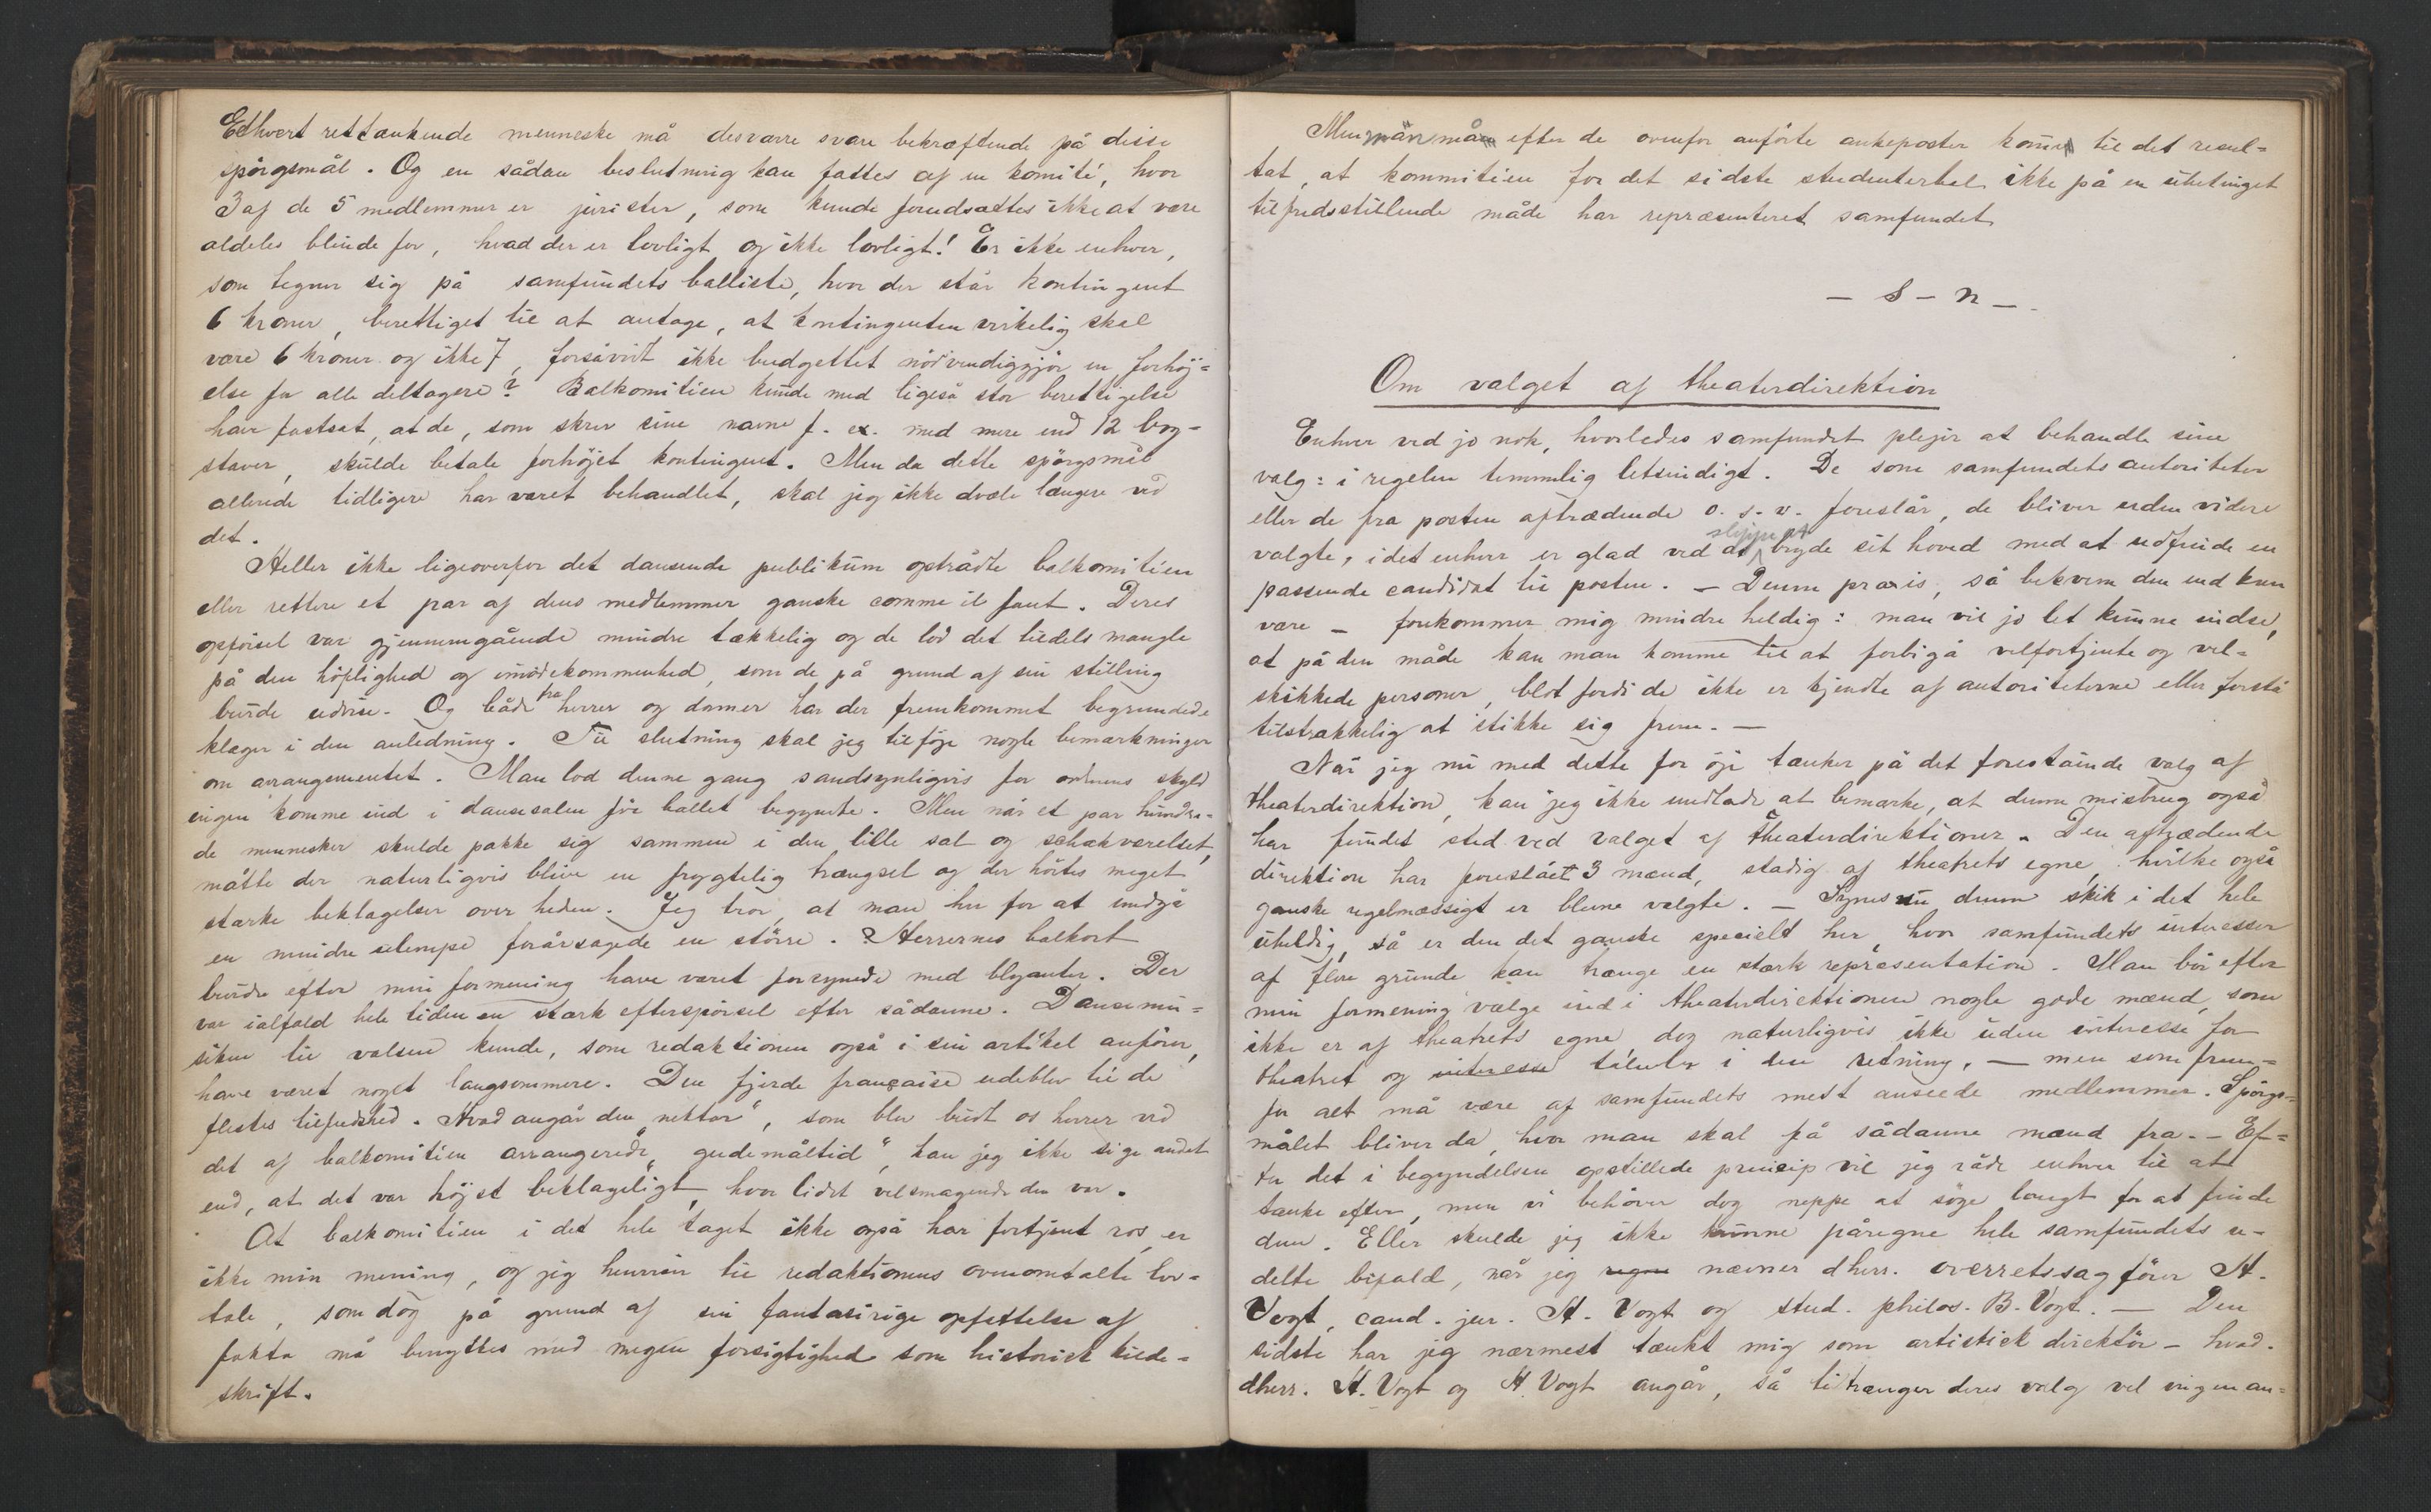 Ethvert rettænkende menneske må desværre svare bekræftende på disse
spørgsmål. Og en sådan beslutning kan fattes af en komité, hvor
3 af de 5 medlemmer er jurister, som kunde forudsættes ikke at være
aldeles blinde for, hvad der er lovligt og ikke lovligt! Er ikke enhver,
som tegner sig på samfundets balliste, hvor der står kontingent
6 kroner, berettiget til at antage, at kontingenten virkelig skal
være 6 kroner og ikke 7, forsåvidt ikke budgettet nödvendiggjör en forhöj=
else for alle deltagere? Balkomitéen kunde med ligeså stor berettigelse
have fastsat, at de, som skrev sine navne f. ex. med mere end 12 bog-
staver, skulde betale forhöjet kontingent. Men da dette spörgsmål
allerede tidligere har været behandlet, skal jeg ikke dvæle længere ved
det.
Heller ikke ligeoverfor det dansende publikum optrådte balkomitéen
eller rettere et par af dens medlemmer ganske comme il faut. Deres
opförsel var gjennemgående mindre tækkelig og de lod det tildels mangle
på den höflighed og imödekommenhed, som de på grund af sin stilling
burde udvise. Og både fra herrer og damer har der fremkommet begrundede
klager i den anledning. Til slutning skal jeg tilföje nogle bemærkninger
om arrangementet. Man lod denne gang sandsynligvis for ordenens skyld
ingen komme ind i dansesalen för ballet begyndte. Men når et par hundre-
de mennesker skulde pakke sig sammen i den lille sal og schakværelset,
måtte der naturligvis blive en frygtelig trængsel og der hörtes meget
stærke beklagelser over heden. Jeg tror, at man her for at undgå
en mindre ulempe forårsagede en större. Herrernes balkort
burde efter min formening have været forsynede med blyanter. Der
var ialfald hele tiden en stærk efterspörsel efter sådanne. Dansemu=
siken til valsen kunde, som redaktionen også i sin artikel anförer,
have været noget langsommere. Den fjerde française udeblev til de
flestes tilfredshed. Hvad angår den "nektar", som blev budt os herrer ved
det af balkomitéen arrangerede "gudemåltid", kan jeg ikke sige andet
end, at det var höjst beklageligt, hvor lidet velsmagende den var.
At balkomitéen i det hele taget ikke også har fortjent ros, er
ikke min mening, og jeg henviser til redaktionens ovenomtalte lov=
tale, som dog på grund af sin fantasirige opfattelse af
fakta må benyttes med megen forsigtighed som historisk kilde=
skrift.
Men man må efter de ovenfor anförte ankeposter komme til det resul=
tat, at kommitéen for det sidste studenterbal ikke på en ubetinget
tilfredsstillende måde har repræsenteret samfundet
– s – n –
Om valget af theaterdirektion
Enhver ved jo nok, hvorledes samfundet plejer at behandle sine
valg: i regelen temmelig letsindigt. De som samfundets autoriteter
eller de fra posten aftrædende o. s. v. foreslår, de bliver uden videre
valgte, idet enhver er glad ved at slippe at bryde sit hoved med at udfinde en
passende candidat til posten. – Denne praxis, så bekvem den end kan
være – forekommer mig mindre heldig: man vil jo let kunne indse,
at på den måde kan man komme til at forbigå velfortjente og vel=
skikkede personer, blot fordi de ikke er kjendte af autoriteterne eller forstå
tilstrækkelig at stikke sig frem. –
Når jeg nu med dette for öje tænker på det forestående valg af
theaterdirektion, kan jeg ikke undlade at bemærke, at denne misbrug også
har fundet sted ved valget af theaterdirektioner. Den aftrædende
direktion har foreslået 3 mænd, stadig af theatrets egne, hvilke også
ganske regelmæssigt er blevne valgte. – Synes nu denne skik i det hele
uheldig, så er den det ganske specielt her, hvor samfundets interesser
af flere grunde kan trænge en stærk repræsentation. Man bör efter
min formening vælge ind i theaterdirektionen nogle gode mænd, som
ikke er af theatrets egne, dog naturligvis ikke uden interesse for
theatret og interesse talenter i den retning, – men som frem=
for alt må være af samfundets mest ansete medlemmer. Spörgs=
målet bliver da, hvor man skal få sådanne mænd fra. – Ef=
ter det i begyndelsen opstillede princip vil jeg råde enhver til at
tænke efter, men vi behöver dog neppe at söge langt for at finde
dem. Eller skulde jeg ikke kunne påregne hele samfundets u-
delte bifald, når jeg regne nævner dherr. overretssagförer H.
Vogt, cand. jur. H. Vogt og stud. philos. B. Vogt. – Den
sidste har jeg nærmest tænkt mig som artistisk direktör – hvad
dherr. H. Vogt og H. Vogt angår, så tiltrænger deres valg vel ingen an=